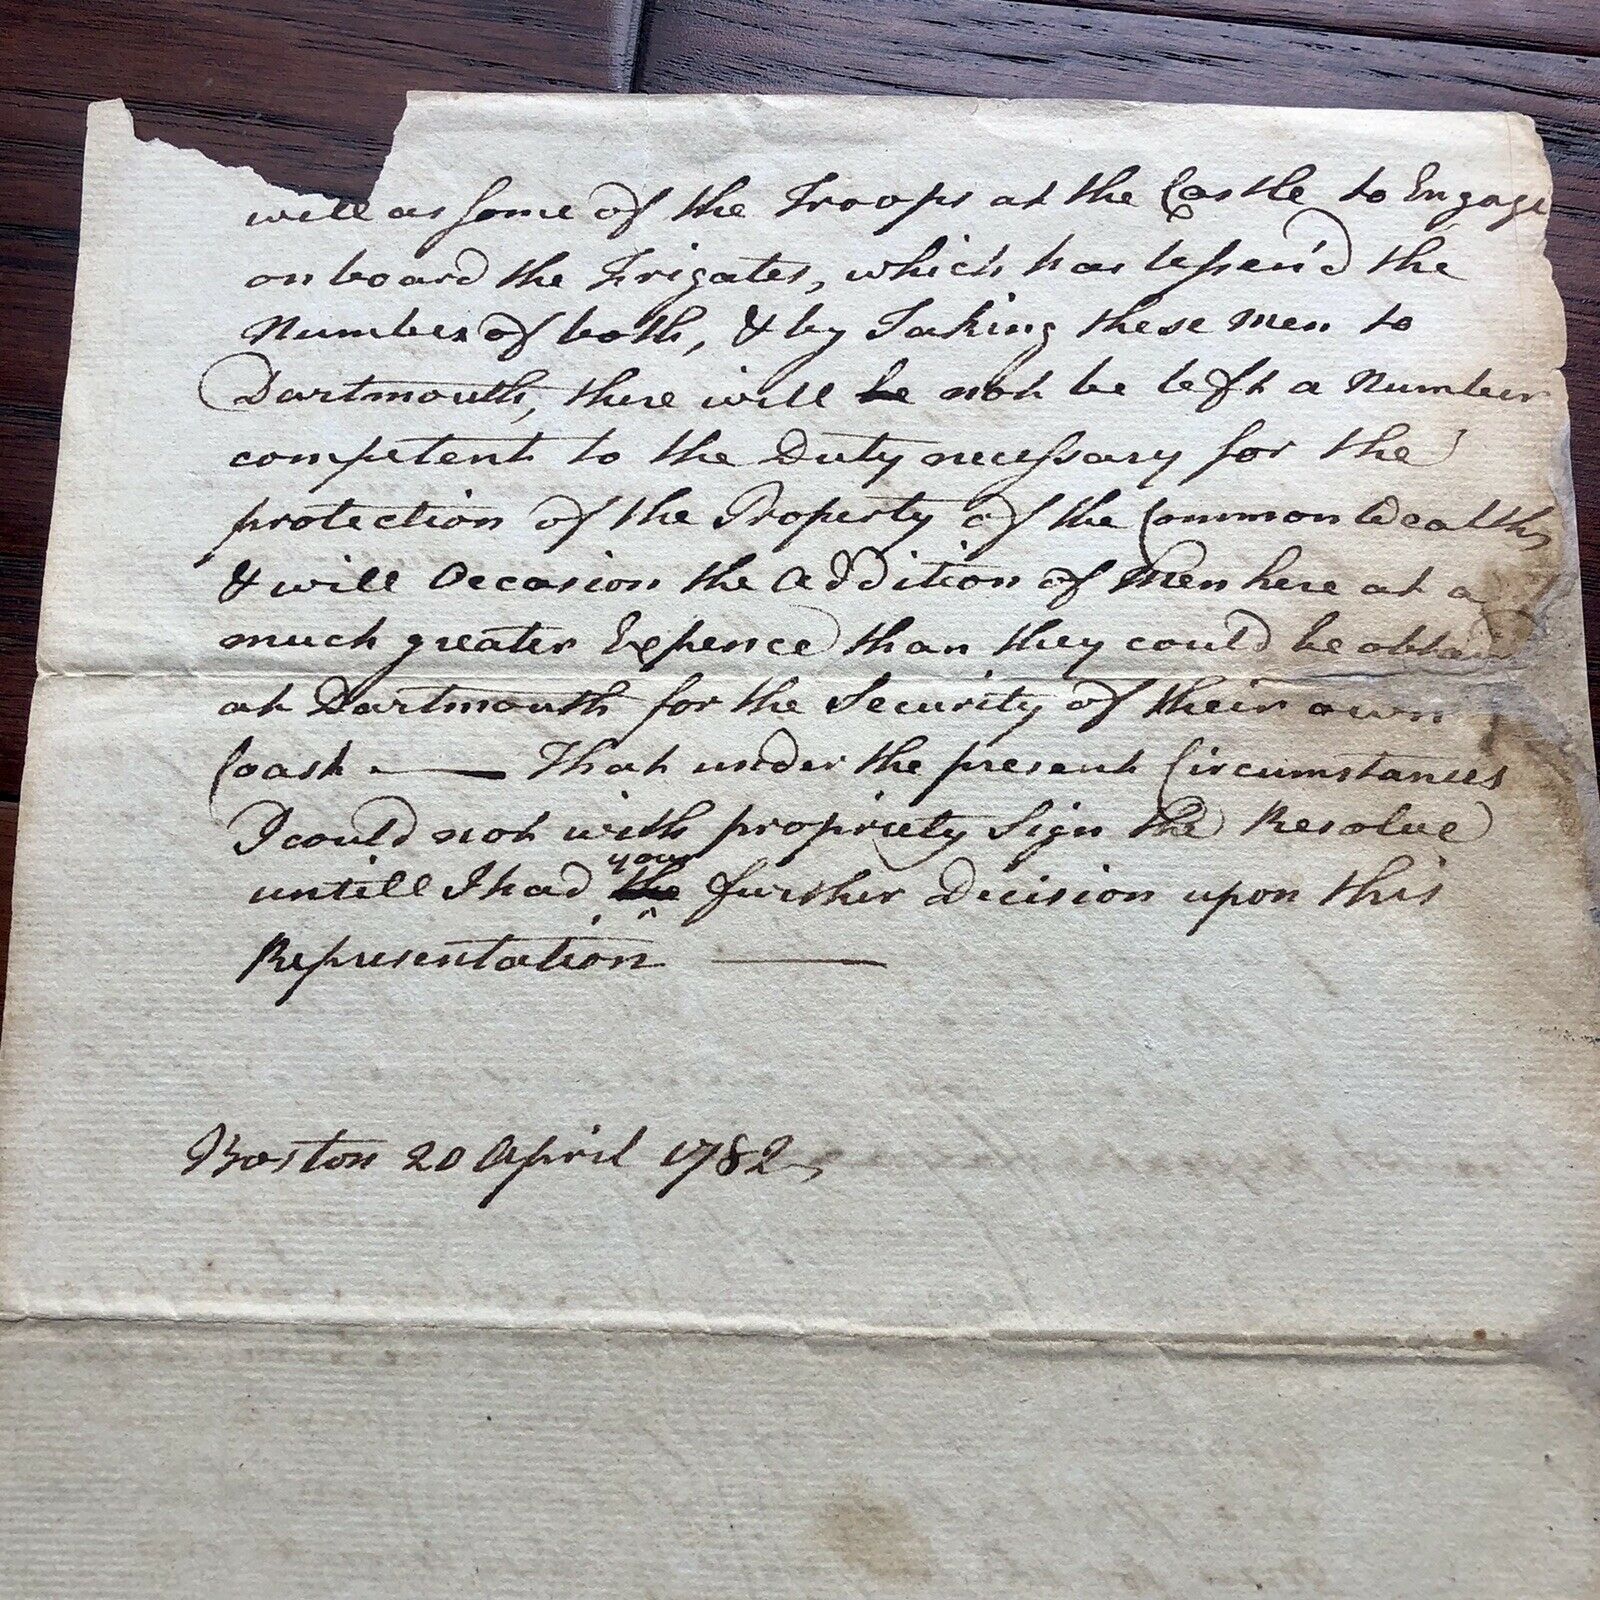 well as some of the Troops at the Castle to Engage
on board the Frigates, which has lessen'd the
Number of both, & by Taking these men to
Dartmouth, there will be not be left a Number
competent to the Duty necessary for the
protection of the Property of the Common Wealth,
& will Occasion the Addition of Men here at a
much greater Expence than they could be obtain'd
at Dartmouth for the Security of their own
Coast — That under the present Circumstances
I could not with propriety Sign the Resolve
untill I had the your further Decision upon this
Representation —
Boston 20 April 1782,